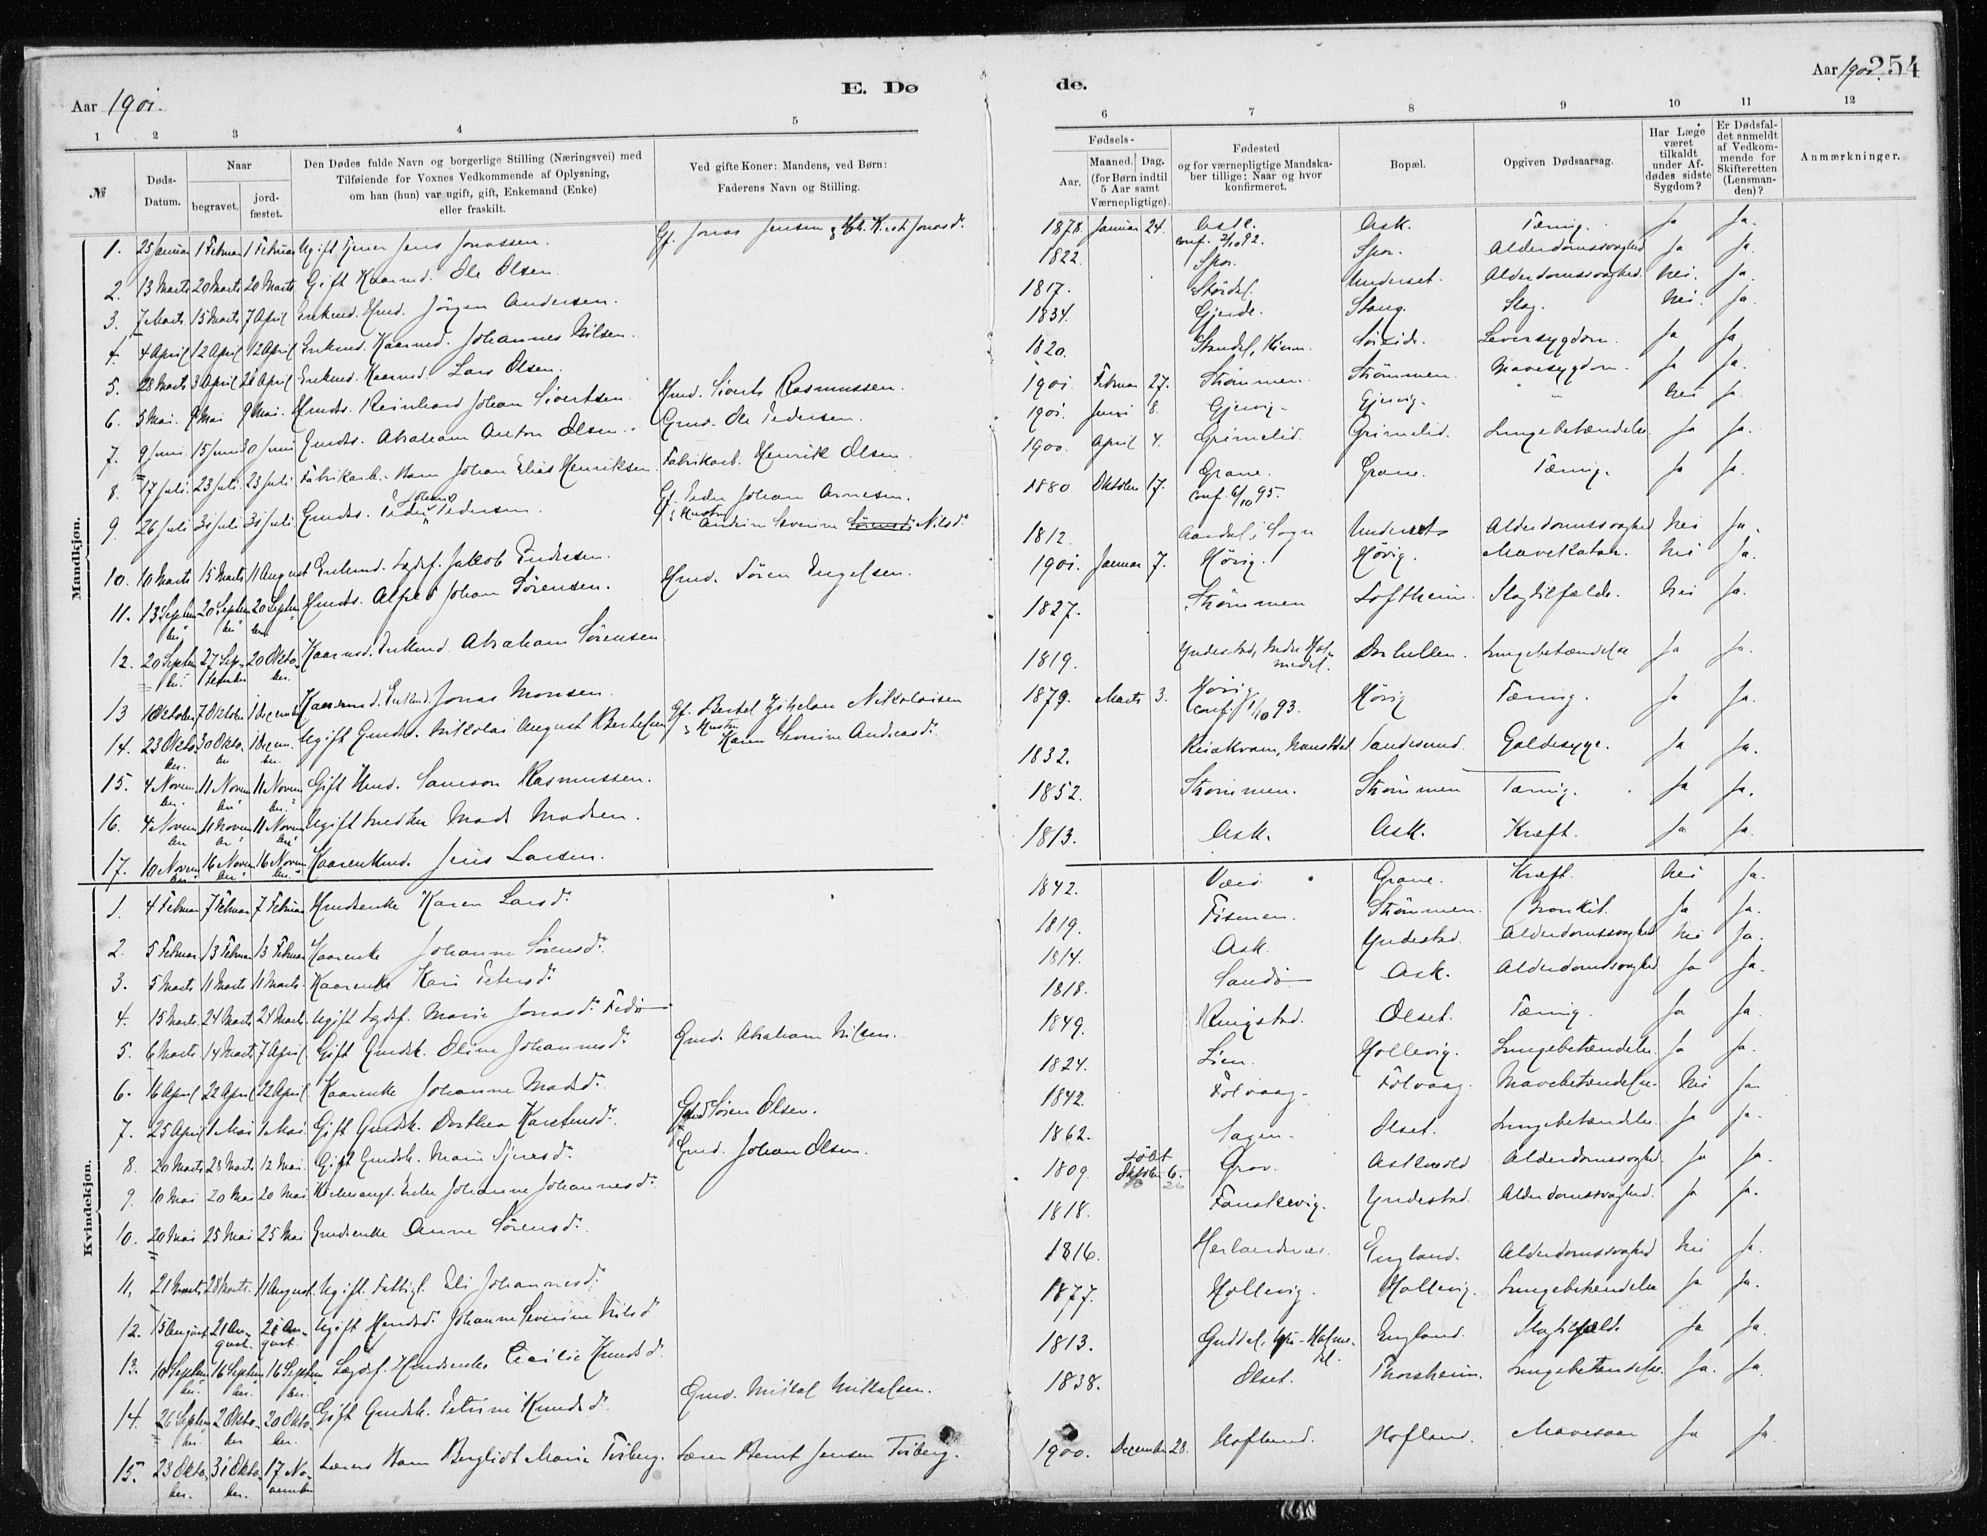 Aar 1901.
E. Dø
de.
Aar 1901.
254
1 2 3 4 5 6 7 8 9 10 11 12
№
Døds-Datum.
Naar
begravet.
jordfæstet.
Den Dødes fulde Navn og borgerlige Stilling (Næringsvei) med
Tilføiende for Voxnes Vedkommende af Oplysning,
om han (hun) var ugift, gift, Enkemand (Enke)
eller fraskilt.
Ved gifte Koner: Mandens, ved Børn:
Faderens Navn og Stilling.
Fødsels-
Aar.
Maaned. Dag.
(for Børn indtil
5 Aar samt
Værnepligtige).
Fødested
og for værnepligtige Mandska-
ber tillige: Naar og hvor
konfirmeret.
Bopæl.
Opgiven Dødsaarsag.
Har Læge
været
tilkaldt
under Af-
dødes sidste
Sygdom?
Er Dødsfal-
det anmeldt
af Vedkom-
mende for
Skifteretten
(Lensman-
den)?
Anmærkninger.
Mandkjøn.
1. 25 Januar 1 Februar 1 Februar Ugift Tjener Jens Jonassen. Gf. Jonas Jensen 1878. Januar 24. conf. 2/10 92. Ask. Tæring. Ja Ja.
2. 13 Marts 20 Marts 20 Marts Gift Kaarmd. Ole Olsen. 1822. Spor. Spor. Alderdomssvaghed Ja Ja.
3. 7 Marts 15 Marts 7 April Enkmd. Hmd. Jörgen Andersen. 1817. Underset. Alderdomssvaghed. Nei. Ja.
4. 4 April 12 April 12 April Enkmd. Kaarmd. Johannes Nilsen. 1834. Gjerde. Stang. Slag. Nei. Ja.
5. 28 Marts 3 April 28 April Enkmd. Kaarmd. Lars Olsen. 1820. Leversygdom. Ja Ja
6. 5 Mai. 9 Mai 9 Mai. Hmds. Reinhard Johan Sivertsen. Hmd. Sivert Rasmussen. 1901. Februar 27. Strömmen. Strömmen. Mavesygdom. Ja Ja.
7. 9 Juni 15 Juni 30 Juni Gmds. Abraham Anton Olsen. Gmd. Ole Pedersen. 1901. Juni 8. Gjervig. Gjervig. " Nei Ja.
8. 17 Juli 23 Juli. 23 Juli Fabrikarb. Barn Johan Elias Henriksen. Fabrikarb. Henrik Olsen. 1900. April 4. Grimelid. Grimelid. Lungebetændelse Ja Ja.
9. 26 Juli 31 Juli 31 Juli. Gmds. Peder Johan Pedersen. Gf. Peder Johan Arnesen. & Hustru Andrine Severine Nilsdr. 1880 Oktober 17. Grane. conf. 6/10 95. Grane. Tæring. Ja Ja.
10. 10 Marts 15 Marts 11 August Enkmd. Lægdsf. Jakob Endresen. 1812. Aardal i Sogn Underset Alderdomssvaghed Nei Ja.
11. 13 September 20 September 20 September Hmds. Alfred Johan Sörensen. Hmd. Sören Engelsen. 1901. Januar 7. Hövig. Hövig. Mavekatar. Nei Ja.
12. 20 September 27 September 20 Oktober. Kaarmd. Enkmd. Abraham Sörensen 1827. Strömmen Loftheim. Slagtilfælde. Nei Ja.
13 1 Oktober 7 Oktober 1 December Kaarmd. Enkmd. Jonas Monsen. 1819. Yndestad, Indre Holmedal. Lungebetændelse Ja Ja.
14. 23 Oktober. 30 Oktober 1 December. Ugift Gmds. Nikolai August Bertelsen Gf. Bertel Nikolaisen & Hustru Karen Severine Andreasdr. 1879. Marts 3. Hövig conf. 1/10 93. Hövig Tæring. Ja Ja.
15. 4 November. 11 November 11 November Gift Hmd. Samson Rasmussen. 1832. Sandesund. Guldesyge. Ja Ja.
16. 4 November 11 November 11 November Ugift Inderst Mads Madsen. 1852. Strömmen. Strömmen Tæring. Ja Ja.
17. 10 November 16 November 16 November. Kaarenkmd. Jens Larsen. 1813. Ask. Ask. Kræft. Ja Ja.
Kvindekjøn.
1. 4 Februar 7 Februar 7 Februar Hmdsenke Karen Larsdr. 1842. Grane. Kræft. Nei Ja.
2. 5 Februar 13 Februar 13 Februar Kaarenke Johanne Sörensdr. 1819. Strömmen. Bronkit. Ja Ja.
3. 5 Marts 11 Marts 11 Marts. Kaarenke Kari Petersdr. 1814. Ask. Yndestad. Alderdomssvaghed Nei Ja.
4. 15 Marts 24 Marts 24 Marts. Ugift Lægdsf. Marie Jonasdr. 1818. Sandö Ask. Alderdomssvaghed Ja Ja.
5. 6 Marts 14 Marts 7 April. Gift Gmdsk. Oline Johannesdr. Gmd. Abraham Nilsen. 1849. Ringstad. Olset. Tæring. Ja Ja.
6. 16 April 22 April 22 April. Kaarenke Johanne Madsdr. 1824. Lien. Hollevig. Lungebetændelse. Ja Ja.
7. 25 April 1 Mai 1 Mai. Gift Gmdsk. Dorthea Karstensdr. Gmd Sören Olsen. 1842. Folvaag. Folvaag. Mavebetændelse. Nei Ja.
8. 20 Marts 28 Marts 12 Mai. Gift Gmdsk. Marie Gmd. Johan Olsen. 1862. Sagen. Olset. Lungebetændelse. Ja Ja.
9. 10 Mai 20 Mai 20 Mai Enke Johanne Johannesdr. 1809. Oktober 6. Grov. Askvold Alderdomssvaghed Ja Ja.
10. 20 Mai 25 Mai 25 Mai Gmdsenke Anne Sörensdr. 1818. Fauskevig. Yndestad. Alderdomssvaghed. Ja Ja.
11. 21 Marts 28 Marts. 11 August. Ugift. Fattigl. Eli Johannesdr. 1816. Herlandnes England. Alderdomssvaghed Nei Ja.
12. 15 August 21 August. 21 August. Ugift Hmdsd. Johanne Severine Nilsdr 1877. Hollevig. Hollevig. Lungebetændelse Ja Ja.
13. 10 September 16 September. 16 September Lægdsf. Hmdsenke Cecilie Knudsdr. 1813. England. Slagtilfælde Ja Ja.
14. 26 September 2 Oktober 20 Oktober. Gift Gmdsk. Petrine Knudsdr. Gmd. Mikkel Mikkelsen. 1838. Olset. Thorsheim. Lungebetændelse. Ja. Ja.
15. 23 Oktober. 31 Oktober. 17 November Lærers Barn Berglidt Marie Tviberg. Lærer Bernt Jensen Tviberg. 1900. December 28. Hofland. Hofland. Mavesaar Ja Ja.